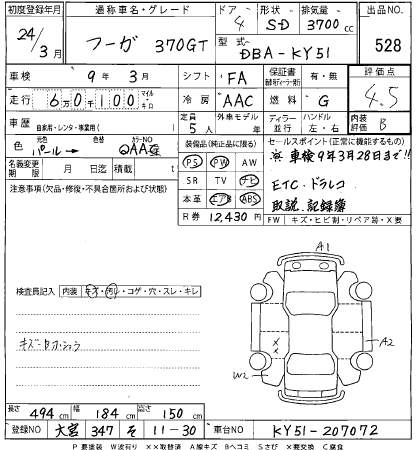 初度登録年月 通称車名・グレード ドア 形状 排気量 出品NO
24/3月 フーガ 370GT 4 SD 3700cc 528
型式 DBA-KY51
車検 9年 3月 シフト FA 保証書 有・無 評価点
走行 6万0千100 マイル・キロ 冷房 AAC 燃料 G 4.5
車歴 自家用・レンタ・事業用( ) 定員 5人 外車モデル 年 ディーラー 並行 ハンドル 左・右 内装評価 B
色 元色 パール→ 色替 カラーNO QAA 装備品(純正品に限る) セールスポイント(正常に機能するもの)
名義変更期限 月 日迄 積載 t PS PW AW ※車検9年3月28日まで!!
注意事項(欠品・修復・不具合箇所および状態) SR TV ナビ ETC・ドラレコ
本革 エアB ABS 取説、記録簿
R券 12,430円 FW キズ・ヒビ割・リペア跡・X要
A1
検査員記入 内装 キズ・汚レ・コゲ・穴・スレ・キレ
A2
W2
長さ 494cm 幅 184cm 高さ 150cm
登録NO 大宮 347 そ 11-30 車台NO KY51-207072
P 要塗装 W波有り ××取替済 A線キズ Bヘコミ Sさび ×要交換 C腐食